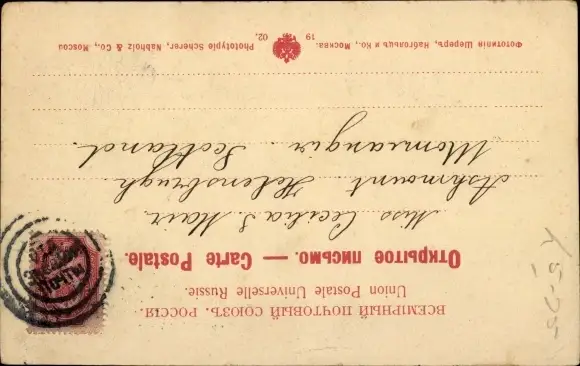 ВСЕМІРНЫЙ ПОЧТОВЫЙ СОЮЗЪ. РОССІЯ.
Union Postale Universelle Russie.
Открытое письмо. — Carte Postale.
Miss Cecilia S Mair
Ashmount. Helensbrugh.
Scotland.
Фототипія Шереръ, Набгольцъ и Ко., Москва.
19 02.
Phototypie Scherer, Nabholz & Co., Moscou